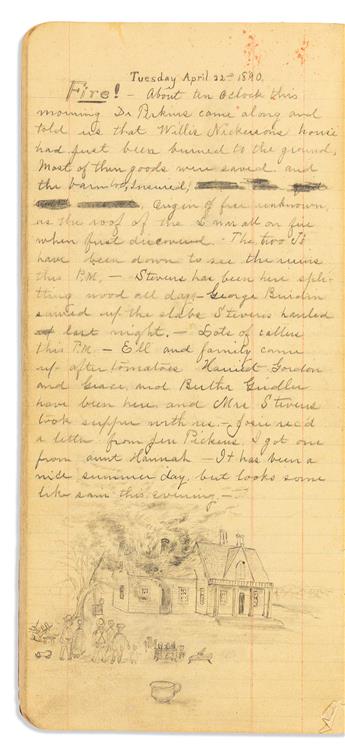 Tuesday April 22nd 1890.
Fire! - About ten Oclock this
morning Dr Perkins came along and
told us that Willie Nickersons house
had just been burned to the ground,
Most of their goods were saved and
the barn too, Insured,
origin of fire unknown,
as the roof of the L was all on fire
when first discovered. The two Js
have been down to see the ruins
this P.M. - Stevens has been here split-
ting wood all day - George
sawed up the slabs Stevens hauled
last night. - Lots of callers
this P.M. - Ell and family came
up after tomatoes Harriet Gordon
and Grace, and Bertha Gridler
have been here and Mrs Stevens
took supper with us. - Josie rec'd
a letter from Jen Pickens, I got one
from aunt Hannah - It has been a
nice summer day, but looks some
like rain this evening -